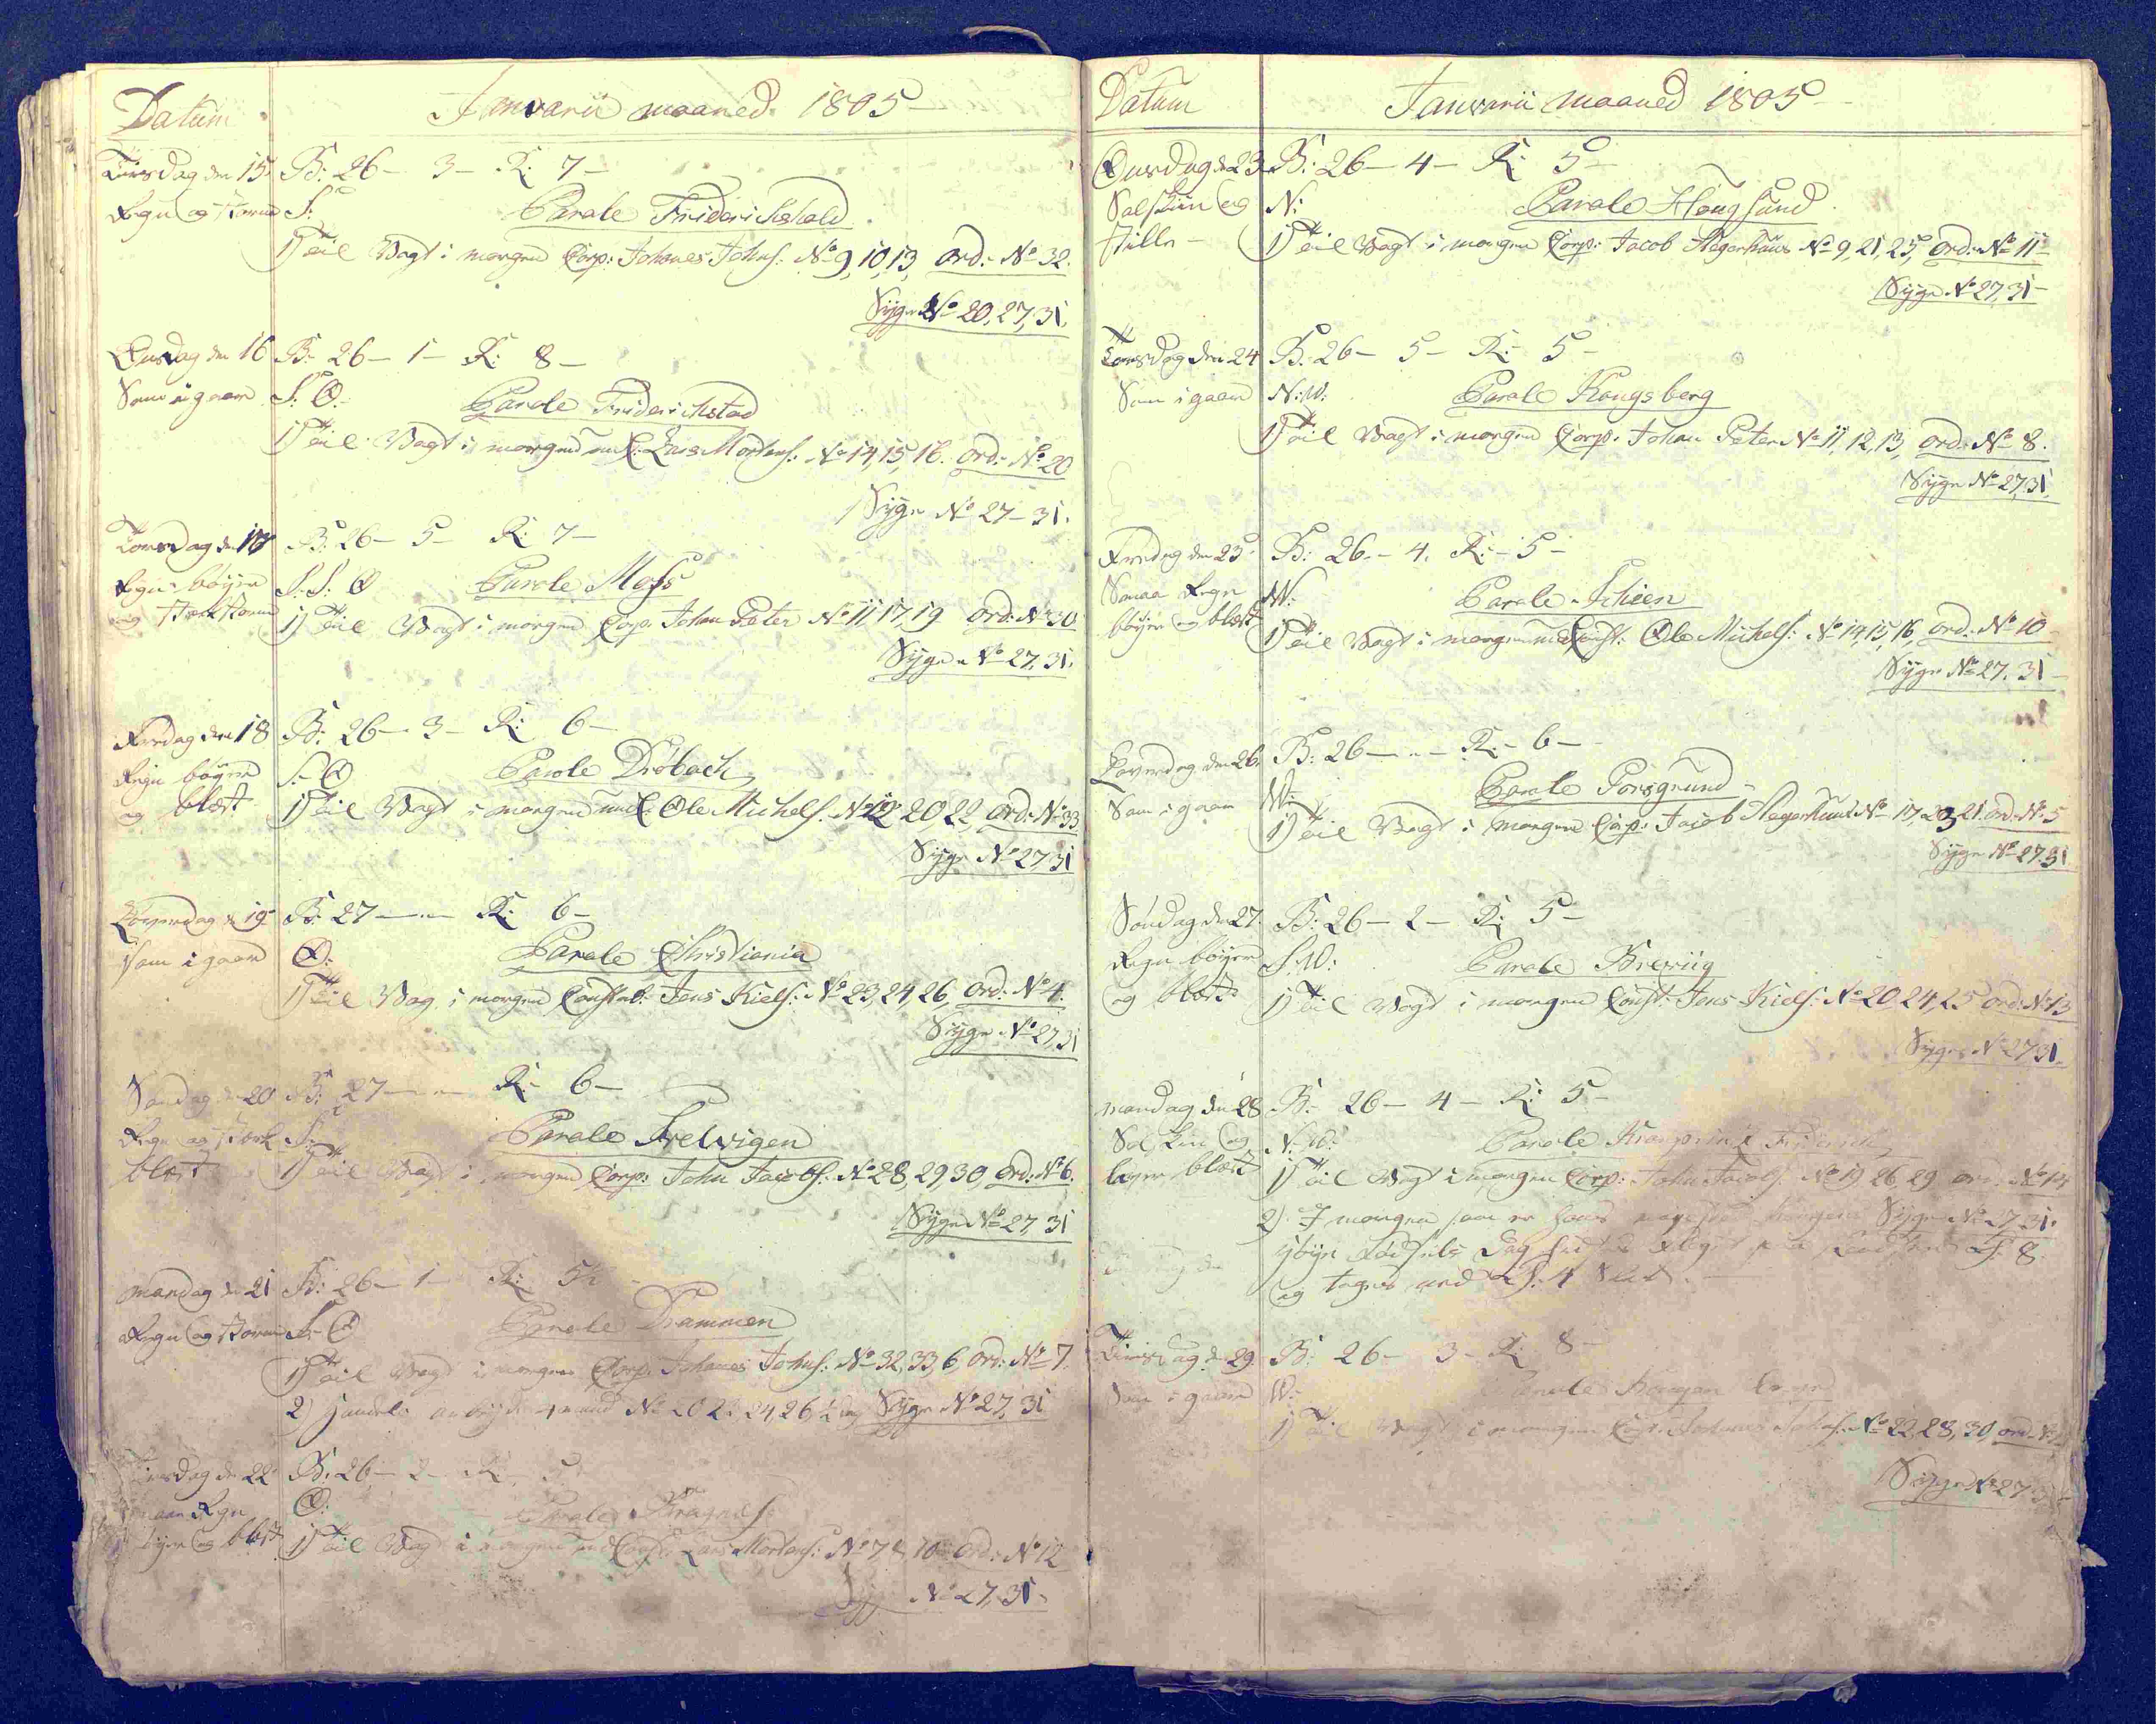 Datum
Januarii maaned 1805
Tiirsdag den 15
B: 26 - 3 - R: 7 -
Regn og storm
S:
Parole Friderichshald
1) Til Vagt i morgen Corp: Johanes Johns: No 9, 10, 13, Ord: No 32.
Syge No 20, 27, 31.
Onsdag den 16
B: 26 - 1 - R: 8 -
Som i gaar
S. O.
Parole Friderichstad
1) Til Vagt i morgen Lars Mortens: No 14, 15, 16. Ord: No 20
Syge No 27 - 31.
Torsdag den 17
B: 26 - 5 - R: 7 -
Regn bøyer
og stærk storm
S: S: O
Parole Moss
1) Til Vagt i morgen Corp: Johan Peter No 11, 17, 19 Ord: No 30
Syge No 27, 31.
Fredag den 18
B: 26 - 3 - R: 6 -
Regn bøyer
og blæst
S: O
Parole Drøbach
1) Til Vagt i morgen Ole Michels: No 19, 20, 22, Ord: No 33
Syge No 27, 31
Løverdag d 19
B: 27 - " - R: 6 -
Som i gaar
O:
Parole Christiania
1) Til Vag. i morgen Constab: Jens Kiels: No 23, 24, 26, Ord: No 4.
Syge No 27, 31
Søndag d 20
B: 27 - " - R: 6 -
Regn og stærk
blæst
S:
Parole Svelvigen
1) Til Vagt i morgen Corp: John Jacobs: No 28, 29, 30, Ord: No 6.
Syge No 27, 31
Mandag d 21
B: 26 - 1 - R: 5½
Regn og storm
S: O
Parole Drammen
1) Til Vagt i morgen Corp: Johanes Johns: No 32, 33, 6, Ord: No 7.
2) mand No 20 23 24, 26 ½ dag Syge No 27, 31
Tiirsdag d 22
B: 26 - 2 - R: 5
Smaa Regn
bøyer og blæst
O:
Parole Bragnes
1) Til Vagt i morgen Const: Lars Mortens: No 7 8, 10 Ord: No 12
Syge No 27, 31
Datum
Januarii maaned 1805
Onsdag d 23
B: 26 - 4 - R: 5 -
Solskiin og
stille -
N:
Parole Hougsund
1) Til Vagt i morgen Corp: Jacob Hegerhuus No 9, 21, 25, Ord: No 11 -
Syge No 27, 31 -
Torsdag den 24
B: 26 - 5 - R: 5 -
Som i gaar
N: W:
Parole Kongsberg
1) Til Vagt i morgen Corp: Johan Peter No 11, 12, 13, Ord: No 8.
Syge No 27, 31.
Fredag den 25
B: 26 - 4. R: - 5 -
Smaa Regn
bøyer og blæst
W:
Parole Schien
1) Til Vagt i morgen Const: Ole Michels: No 14, 15, 16, Ord: No 10 -
Syge No 27. 31 -
Løverdag den 26.
B: 26 - " - R: - 6 -
Som i gaar
W:
Parole Porsgrund -
1) Til Vagt i morgen Corp: Jacob Hegerhuus No 17, 23, 21 ord: No 5
Syge No 27 31
Søndag den 27.
B: 26 - 2 - R: 5 -
Regn bøyer
og blæst
S. W:
Parole Breviig
1) Til Vagt i morgen Const: Jens Kiels: No 20, 24, 25 ord: No 13
Syge No 27 31
Mandag den 28
B: 26 - 4 - R: 5 -
Solskin og
bøyer blæst
N. W:
Parole Kronprinz Friderich
1) Til Vagt i morgen Corp: John Jacobs: No 19 26, 29 ord: No 14
2) I morgen saa er hans Syge No 27 31.
Fødsels Dag 8.
og tages ned
Tiirsdag d 29
B: 26 - 3 - R: 8 -
Som i gaar
W:
Parole
1) Til Vagt i morgen Corp: Johanes Johns: No 22, 28, 30, ord: No
Syge No 27 31